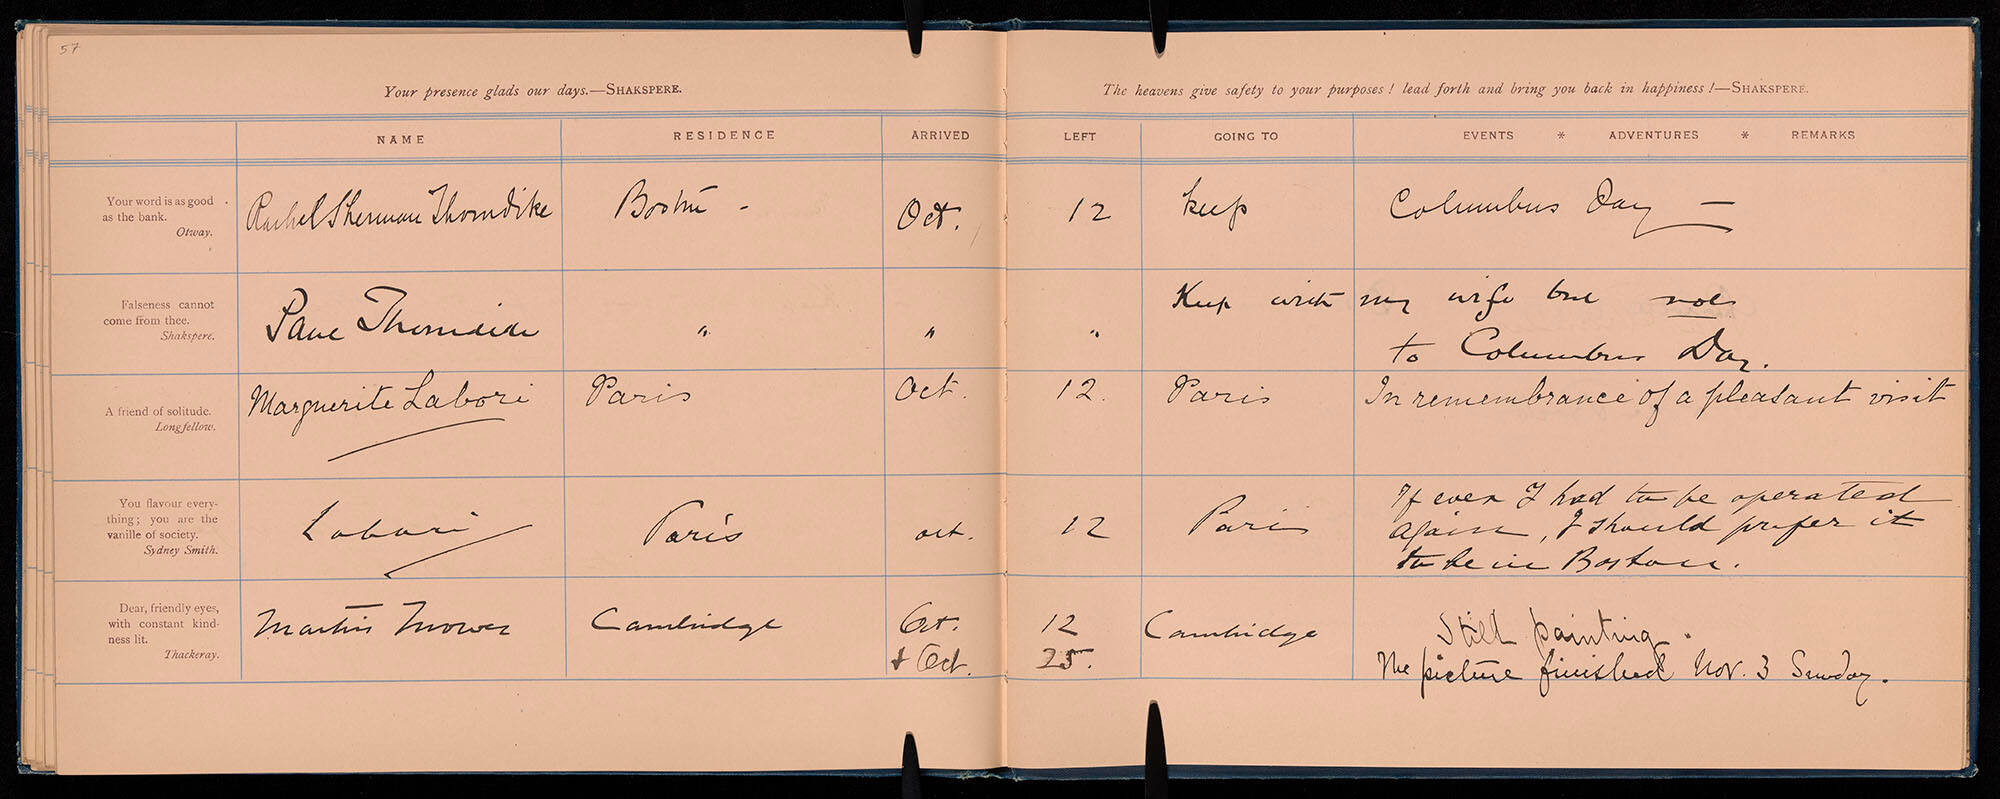 57
Your presence glads our days.—SHAKSPERE.
The heavens give safety to your purposes! lead forth and bring you back in happiness!—SHAKSPERE.
NAME RESIDENCE ARRIVED LEFT GOING TO EVENTS * ADVENTURES * REMARKS
Your word is as good
as the bank.
Otway.
Rachel Sherman Thorndike Boston - Oct. 12 Keep Columbus Day —
Falseness cannot
come from thee.
Shakspere.
Paul Thorndike " " " Keep with my wife but not
to Columbus Day.
A friend of solitude.
Longfellow.
Marguerite Labori Paris Oct. 12. Paris In remembrance of a pleasant visit
You flavour every-
thing; you are the
vanille of society.
Sydney Smith.
Labori Paris oct. 12 Paris If ever I had to be operated
again, I should prefer it
to be in Boston.
Dear, friendly eyes,
with constant kind-
ness lit.
Thackeray.
Martin Mower Cambridge Oct. 12 Cambridge Still painting.
& Oct. 25. The picture finished Nov. 3 Sunday.